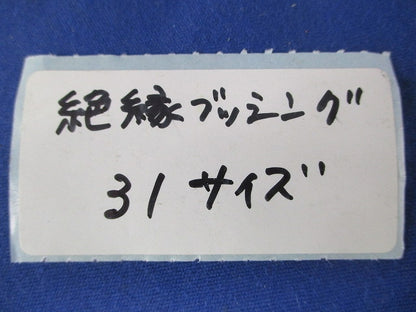 絶縁ブッシング
31サイズ